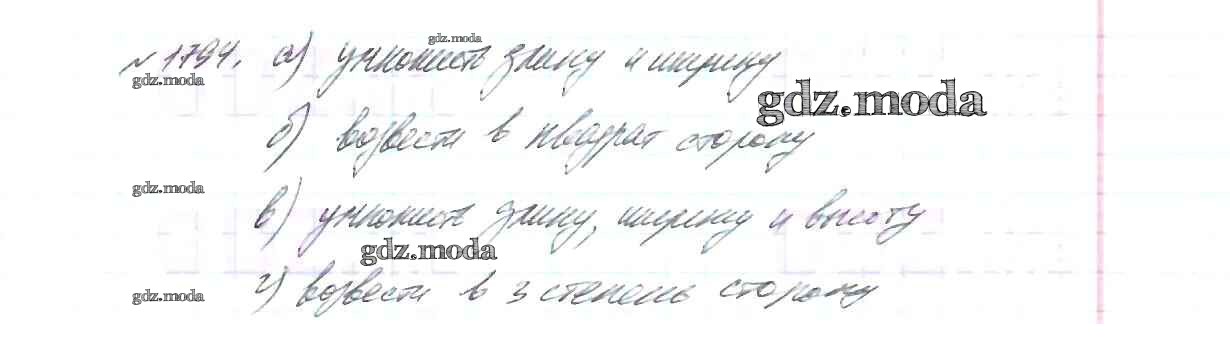 gdz.moda
№ 1794. а) умножить длину и ширину
gdz.moda
gdz.moda
б) возвести в квадрат сторону
gdz.moda
в) умножить длину, ширину и высоту
gdz.moda
г) возвести в 3 степень сторону
gdz.moda